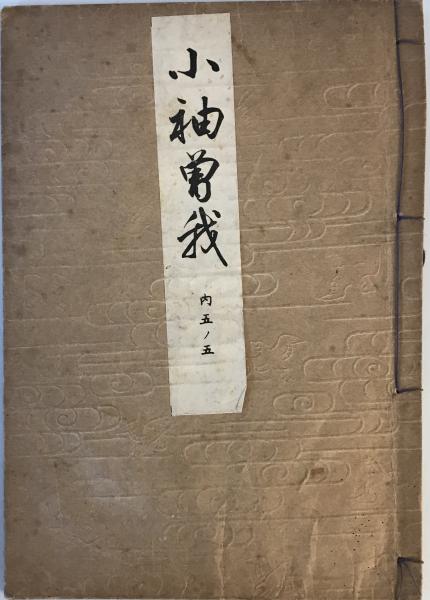 小袖曽我
内五ノ五